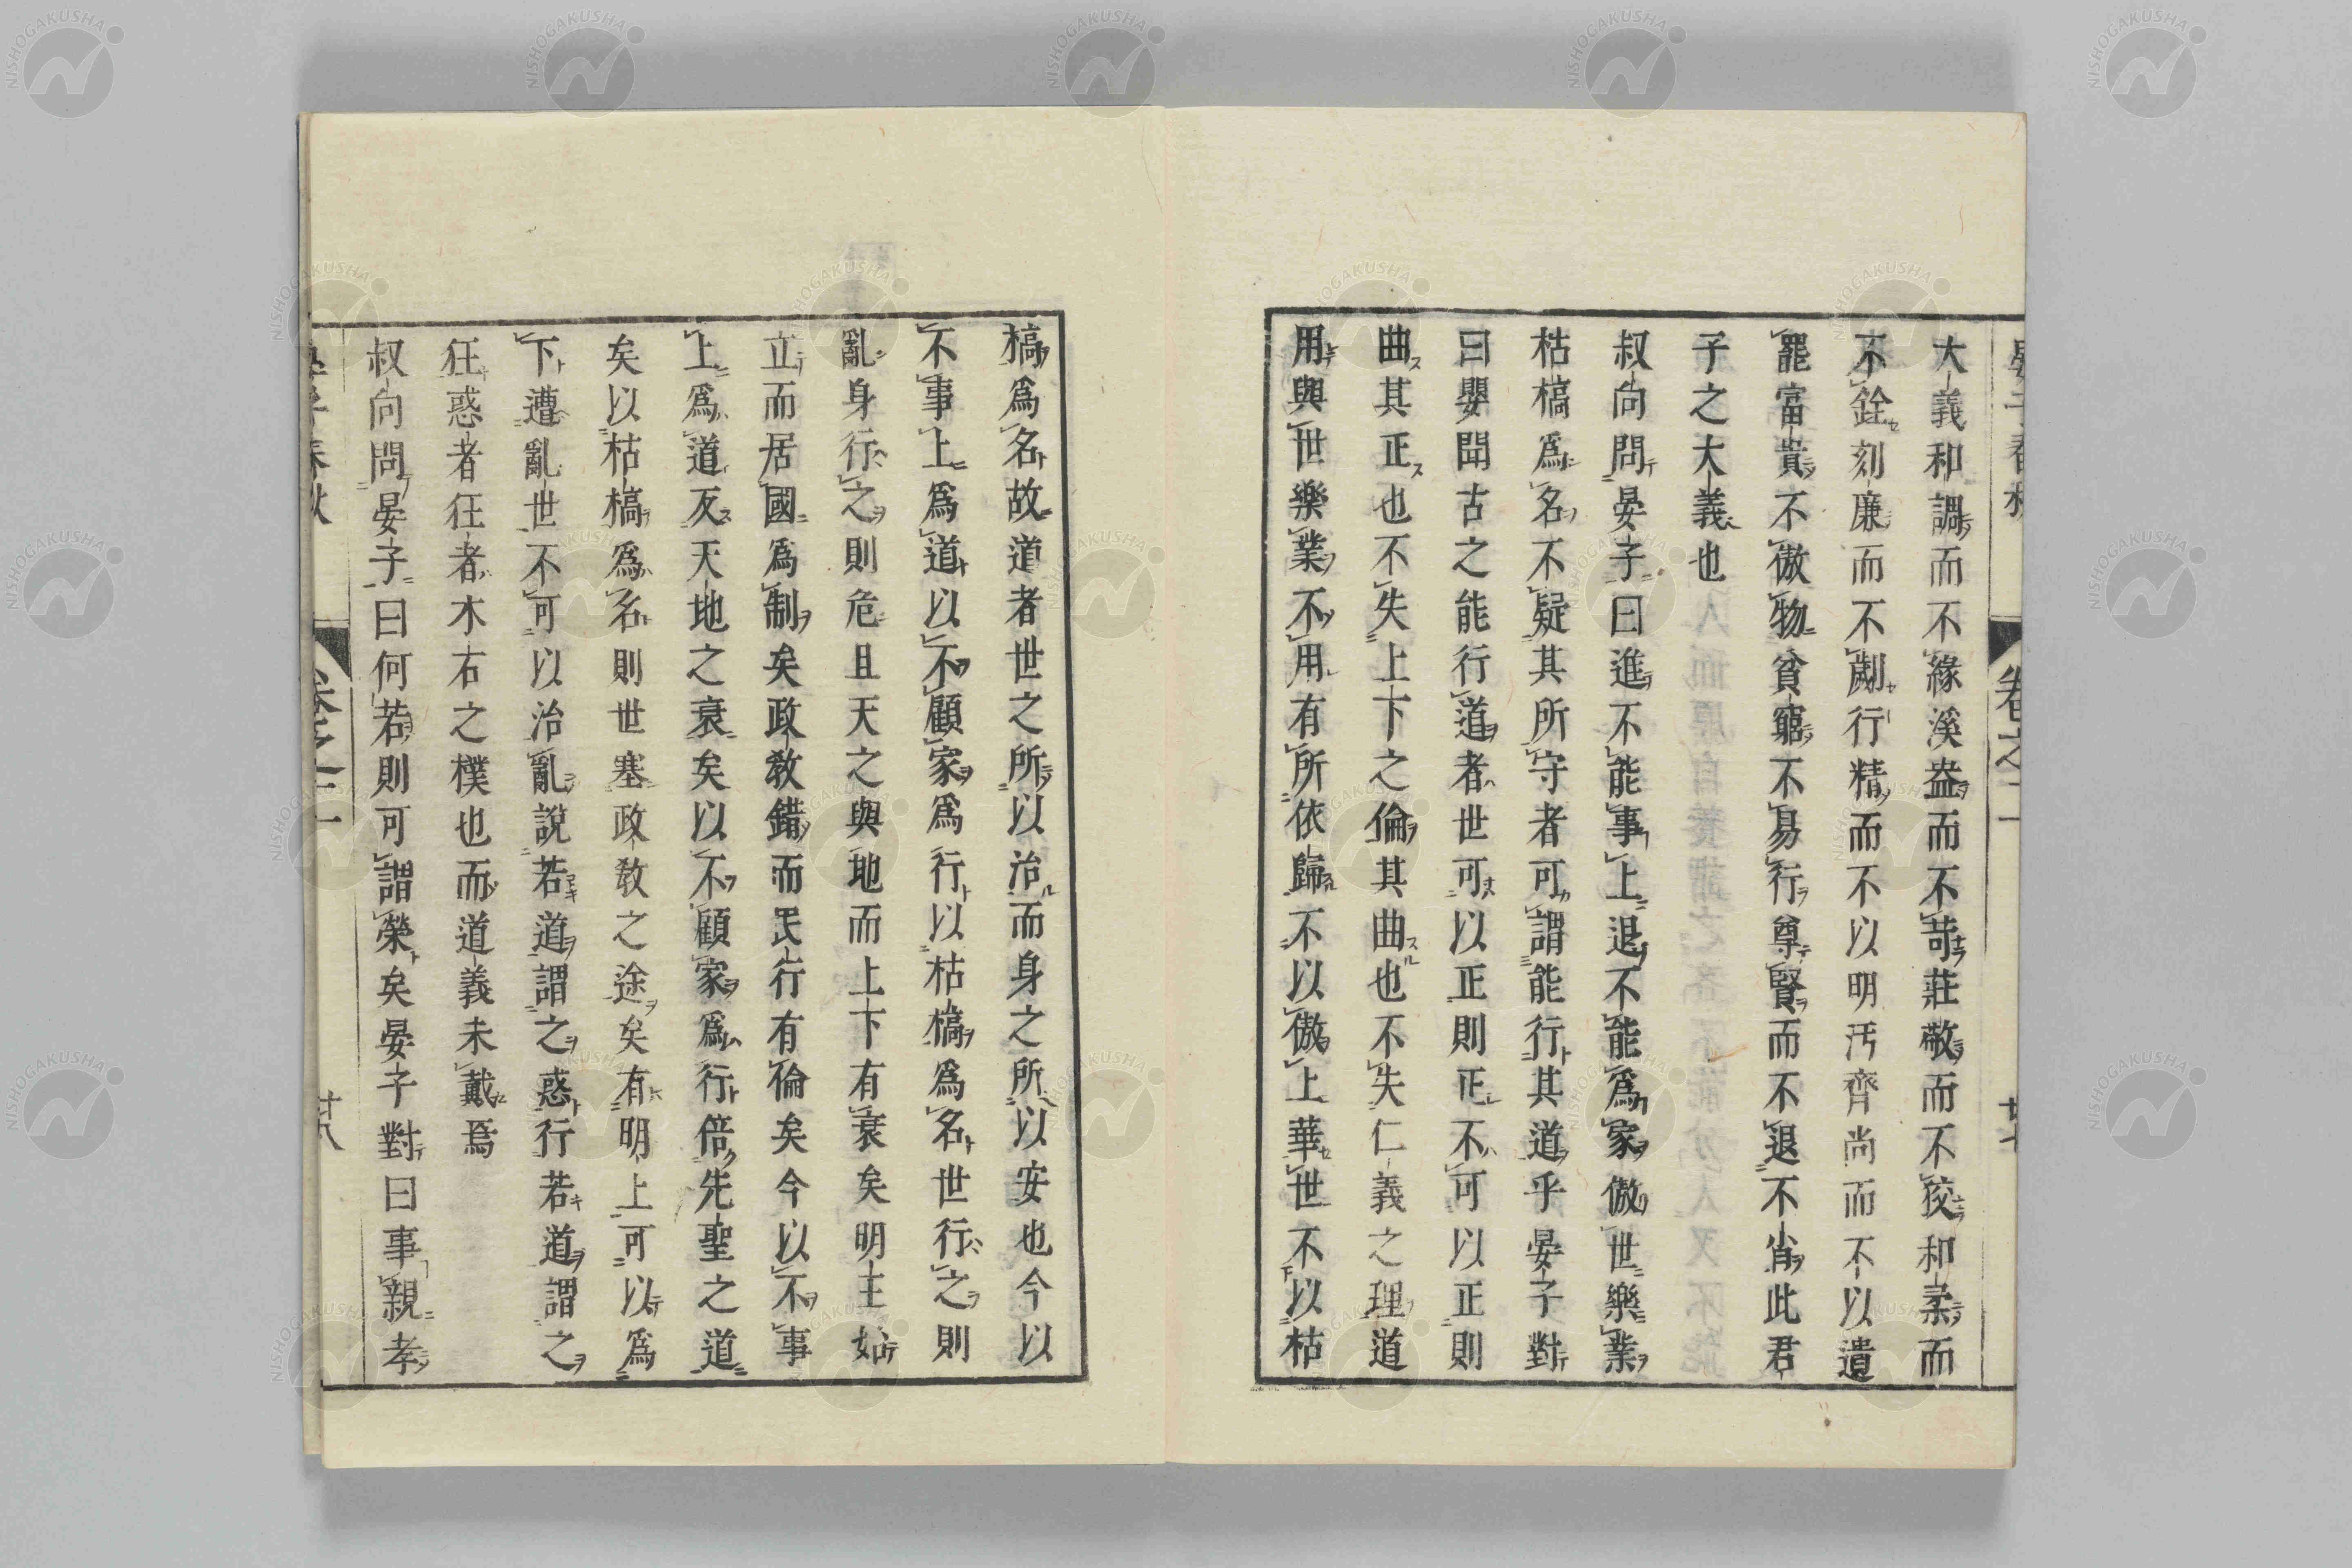 大義和調而不緣溪盎而不苛莊敬而不狡和柔而
不銓刻廉而不劌行精而不以明汚齊尚而不以遺
罷富貴不傲物貧窮不易行尊賢而不退不肖此君
子之大義也
叔向問晏子曰進不能事上退不能爲家傲世樂業
枯槁爲名不疑其所守者可謂能行其道乎晏子對
曰嬰聞古之能行道者世可以正則正不可以正則
曲其正也不失上下之倫其曲也不失仁義之理道
用與世樂業不用有所依歸不以傲上華世不以枯
槁爲名故道者世之所以治而身之所以安也今以
不事上爲道以不顧家爲行以枯槁爲名世行之則
亂身行之則危且天之與地而上下有衰矣明王始
立而居國爲制矣政敎錯而民行有倫矣今以不事
上爲道反天地之衰矣以不顧家爲行倍先聖之道
矣以枯槁爲名則世塞政敎之途矣有明上可以爲
下遭亂世不可以治亂說若道謂之惑行若道謂之
狂惑者狂者木石之樸也而道義未戴焉
叔向問晏子曰何若則可謂榮矣晏子對曰事親孝
晏子春秋 卷之二 廿八
NISHOGAKUSHA